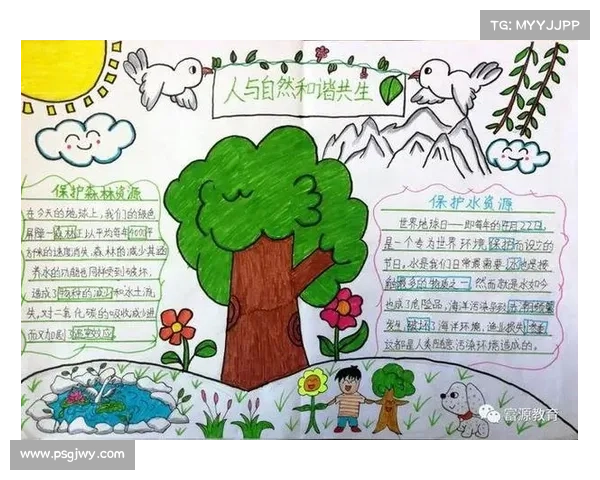 TG: MYYJJPP
人与自然和谐共生
保护森林资源
在今天的地球上,我们的绿色
屏障—森林正以平均每年4000平
方千米的速度消失。森林的减少其涵
养水的功能也同样受到破坏,
造成了物种的减少和水土流
失,对二氧化碳的吸收减少进
而又加剧了温室效应。
保护水资源
世界地球日——即每年的4月22日,
是一个专为世界环境保护而设立的
节日,水是我们日常最需要,
最多的物质之一,然而就是水如今
也成了危险品,海洋污染
发生,破坏了海洋环境,渔业损失
这都是人类随意污染环境造成的。
富源教育
www.psgjwy.com